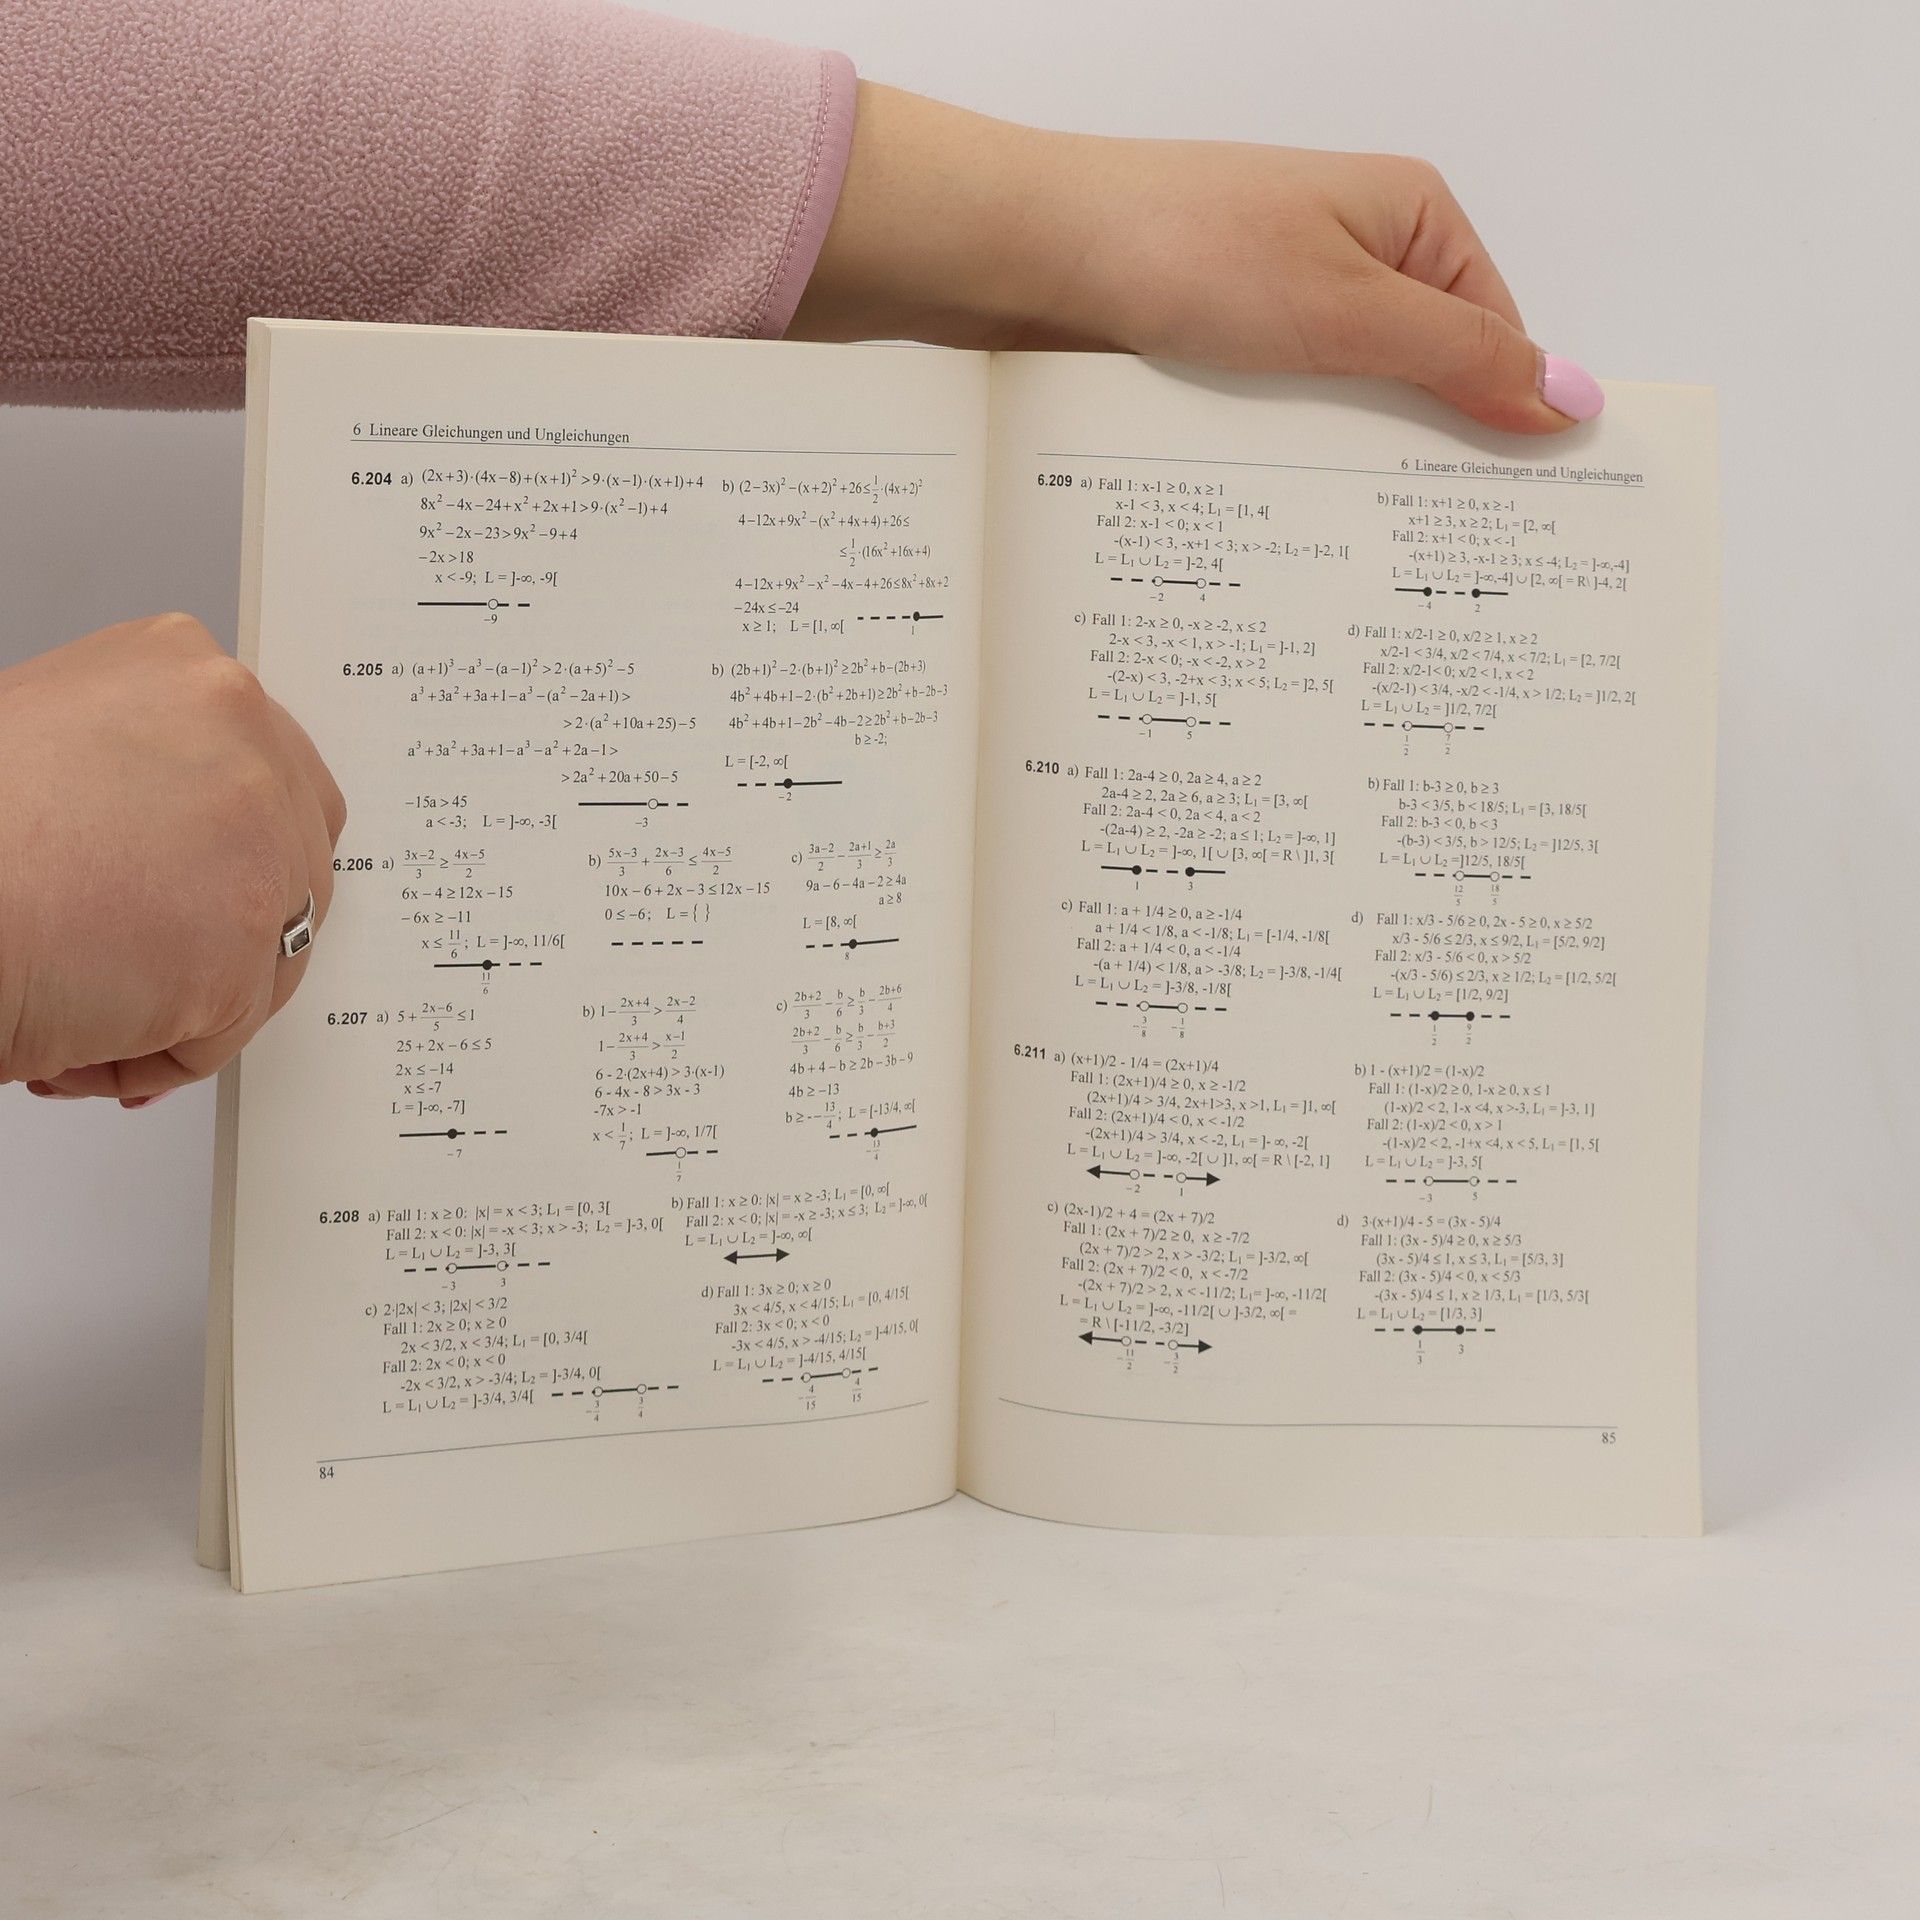 6 Lineare Gleichungen und Ungleichungen
6.204 a) (2x+3)·(4x−8)+(x+1)² >9·(x−1)·(x+1)+4
8x²−4x−24+x²+2x+1>9·(x²−1)+4
9x²−2x−23>9x²−9+4
−2x>18
x < -9; L = ]-∞, -9[
−9
b) (2−3x)²−(x+2)²+26≤1/2·(4x+2)²
4−12x+9x²−(x²+4x+4)+26≤
≤1/2·(16x²+16x+4)
4−12x+9x²−x²−4x−4+26≤8x²+8x+2
−24x≤−24
x ≥ 1; L = [1, ∞[
1
6.205 a) (a+1)³−a³−(a−1)² >2·(a+5)²−5
a³+3a²+3a+1−a³−(a²−2a+1)>
>2·(a²+10a+25)−5
a³+3a²+3a+1−a³−a²+2a−1>
>2a²+20a+50−5
−15a>45
a < -3; L = ]-∞, -3[
−3
b) (2b+1)²−2·(b+1)²≥2b²+b−(2b+3)
4b²+4b+1−2·(b²+2b+1)≥2b²+b−2b−3
4b²+4b+1−2b²−4b−2≥2b²+b−2b−3
b ≥ -2;
L = [-2, ∞[
−2
6.206 a) 3x−2/3 ≥ 4x−5/2
6x−4≥12x−15
−6x≥−11
x≤11/6; L = ]-∞, 11/6[
11/6
b) 5x−3/3 + 2x−3/6 ≤ 4x−5/2
10x−6+2x−3≤12x−15
0≤−6; L={ }
c) 3a−2/2 − 2a+1/3 ≥ 2a/3
9a−6−4a−2≥4a
a≥8
L = [8, ∞[
8
6.207 a) 5+2x−6/5≤1
25+2x−6≤5
2x≤−14
x≤-7
L = ]-∞, -7]
−7
b) 1−2x+4/3>2x−2/4
1−2x+4/3>x−1/2
6 - 2·(2x+4) > 3·(x-1)
6 - 4x - 8 > 3x - 3
-7x > -1
x<1/7; L = ]-∞, 1/7[
1/7
c) 2b+2/3−b/6≥b/3−2b+6/4
2b+2/3−b/6≥b/3−b+3/2
4b+4−b≥2b−3b−9
4b≥−13
b≥−−13/4; L = [-13/4, ∞[
−13/4
6.208 a) Fall 1: x ≥ 0: |x| = x < 3; L₁ = [0, 3[
Fall 2: x < 0: |x| = -x < 3; x > -3; L₂ = ]-3, 0[
L = L₁ ∪ L₂ = ]-3, 3[
−3 3
b) Fall 1: x ≥ 0: |x| = x ≥ -3; L₁ = [0, ∞[
Fall 2: x < 0; |x| = -x ≥ -3; x ≤ 3; L₂ = ]-∞, 0[
L = L₁ ∪ L₂ = ]-∞, ∞[
c) 2·|2x| < 3; |2x| < 3/2
Fall 1: 2x ≥ 0; x ≥ 0
2x < 3/2, x < 3/4; L₁ = [0, 3/4[
Fall 2: 2x < 0; x < 0
-2x < 3/2, x > -3/4; L₂ = ]-3/4, 0[
L = L₁ ∪ L₂ = ]-3/4, 3/4[
−3/4 3/4
d) Fall 1: 3x ≥ 0; x ≥ 0
3x < 4/5, x < 4/15; L₁ = [0, 4/15[
Fall 2: 3x < 0; x < 0
-3x < 4/5, x > -4/15; L₂ = ]-4/15, 0[
L = L₁ ∪ L₂ = ]-4/15, 4/15[
−4/15 4/15
84
6 Lineare Gleichungen und Ungleichungen
6.209 a) Fall 1: x-1 ≥ 0, x ≥ 1
x-1 < 3, x < 4; L₁ = [1, 4[
Fall 2: x-1 < 0; x < 1
-(x-1) < 3, -x+1 < 3; x > -2; L₂ = ]-2, 1[
L = L₁ ∪ L₂ = ]-2, 4[
−2 4
b) Fall 1: x+1 ≥ 0, x ≥ -1
x+1 ≥ 3, x ≥ 2; L₁ = [2, ∞[
Fall 2: x+1 < 0; x < -1
-(x+1) ≥ 3, -x-1 ≥ 3; x ≤ -4; L₂ = ]-∞,-4]
L = L₁ ∪ L₂ = ]-∞,-4] ∪ [2, ∞[ = R\ ]-4, 2[
−4 2
c) Fall 1: 2-x ≥ 0, -x ≥ -2, x ≤ 2
2-x < 3, -x < 1, x > -1; L₁ = ]-1, 2]
Fall 2: 2-x < 0; -x < -2, x > 2
-(2-x) < 3, -2+x < 3; x < 5; L₂ = ]2, 5[
L = L₁ ∪ L₂ = ]-1, 5[
−1 5
d) Fall 1: x/2-1 ≥ 0, x/2 ≥ 1, x ≥ 2
x/2-1 < 3/4, x/2 < 7/4, x < 7/2; L₁ = [2, 7/2[
Fall 2: x/2-1< 0; x/2 < 1, x < 2
-(x/2-1) < 3/4, -x/2 < -1/4, x > 1/2; L₂ = ]1/2, 2[
L = L₁ ∪ L₂ = ]1/2, 7/2[
1/2 7/2
6.210 a) Fall 1: 2a-4 ≥ 0, 2a ≥ 4, a ≥ 2
2a-4 ≥ 2, 2a ≥ 6, a ≥ 3; L₁ = [3, ∞[
Fall 2: 2a-4 < 0, 2a < 4, a < 2
-(2a-4) ≥ 2, -2a ≥ -2; a ≤ 1; L₂ = ]-∞, 1]
L = L₁ ∪ L₂ = ]-∞, 1[ ∪ [3, ∞[ = R \ ]1, 3[
1 3
b) Fall 1: b-3 ≥ 0, b ≥ 3
b-3 < 3/5, b < 18/5; L₁ = [3, 18/5[
Fall 2: b-3 < 0, b < 3
-(b-3) < 3/5, b > 12/5; L₂ = ]12/5, 3[
L = L₁ ∪ L₂ =]12/5, 18/5[
12/5 18/5
c) Fall 1: a + 1/4 ≥ 0, a ≥ -1/4
a + 1/4 < 1/8, a < -1/8; L₁ = [-1/4, -1/8[
Fall 2: a + 1/4 < 0, a < -1/4
-(a + 1/4) < 1/8, a > -3/8; L₂ = ]-3/8, -1/4[
L = L₁ ∪ L₂ = ]-3/8, -1/8[
−3/8 −1/8
d) Fall 1: x/3 - 5/6 ≥ 0, 2x - 5 ≥ 0, x ≥ 5/2
x/3 - 5/6 ≤ 2/3, x ≤ 9/2, L₁ = [5/2, 9/2]
Fall 2: x/3 - 5/6 < 0, x > 5/2
-(x/3 - 5/6) ≤ 2/3, x ≥ 1/2; L₂ = [1/2, 5/2[
L = L₁ ∪ L₂ = [1/2, 9/2]
1/2 9/2
6.211 a) (x+1)/2 - 1/4 = (2x+1)/4
Fall 1: (2x+1)/4 ≥ 0, x ≥ -1/2
(2x+1)/4 > 3/4, 2x+1>3, x >1, L₁ = ]1, ∞[
Fall 2: (2x+1)/4 < 0, x < -1/2
-(2x+1)/4 > 3/4, x < -2, L₁ = ]- ∞, -2[
L = L₁ ∪ L₂ = ]-∞, -2[ ∪ ]1, ∞[ = R \ [-2, 1]
−2 1
b) 1 - (x+1)/2 = (1-x)/2
Fall 1: (1-x)/2 ≥ 0, 1-x ≥ 0, x ≤ 1
(1-x)/2 < 2, 1-x <4, x >-3, L₁ = ]-3, 1]
Fall 2: (1-x)/2 < 0, x > 1
-(1-x)/2 < 2, -1+x <4, x < 5, L₁ = [1, 5[
L = L₁ ∪ L₂ = ]-3, 5[
−3 5
c) (2x-1)/2 + 4 = (2x + 7)/2
Fall 1: (2x + 7)/2 ≥ 0, x ≥ -7/2
(2x + 7)/2 > 2, x > -3/2; L₁ = ]-3/2, ∞[
Fall 2: (2x + 7)/2 < 0, x < -7/2
-(2x + 7)/2 > 2, x < -11/2; L₁= ]-∞, -11/2[
L = L₁ ∪ L₂ = ]-∞, -11/2[ ∪ ]-3/2, ∞[ =
= R \ [-11/2, -3/2]
−11/2 −3/2
d) 3·(x+1)/4 - 5 = (3x - 5)/4
Fall 1: (3x - 5)/4 ≥ 0, x ≥ 5/3
(3x - 5)/4 ≤ 1, x ≤ 3, L₁ = [5/3, 3]
Fall 2: (3x - 5)/4 < 0, x < 5/3
-(3x - 5)/4 ≤ 1, x ≥ 1/3, L₁ = [1/3, 5/3[
L = L₁ ∪ L₂ = [1/3, 3]
1/3 3
85